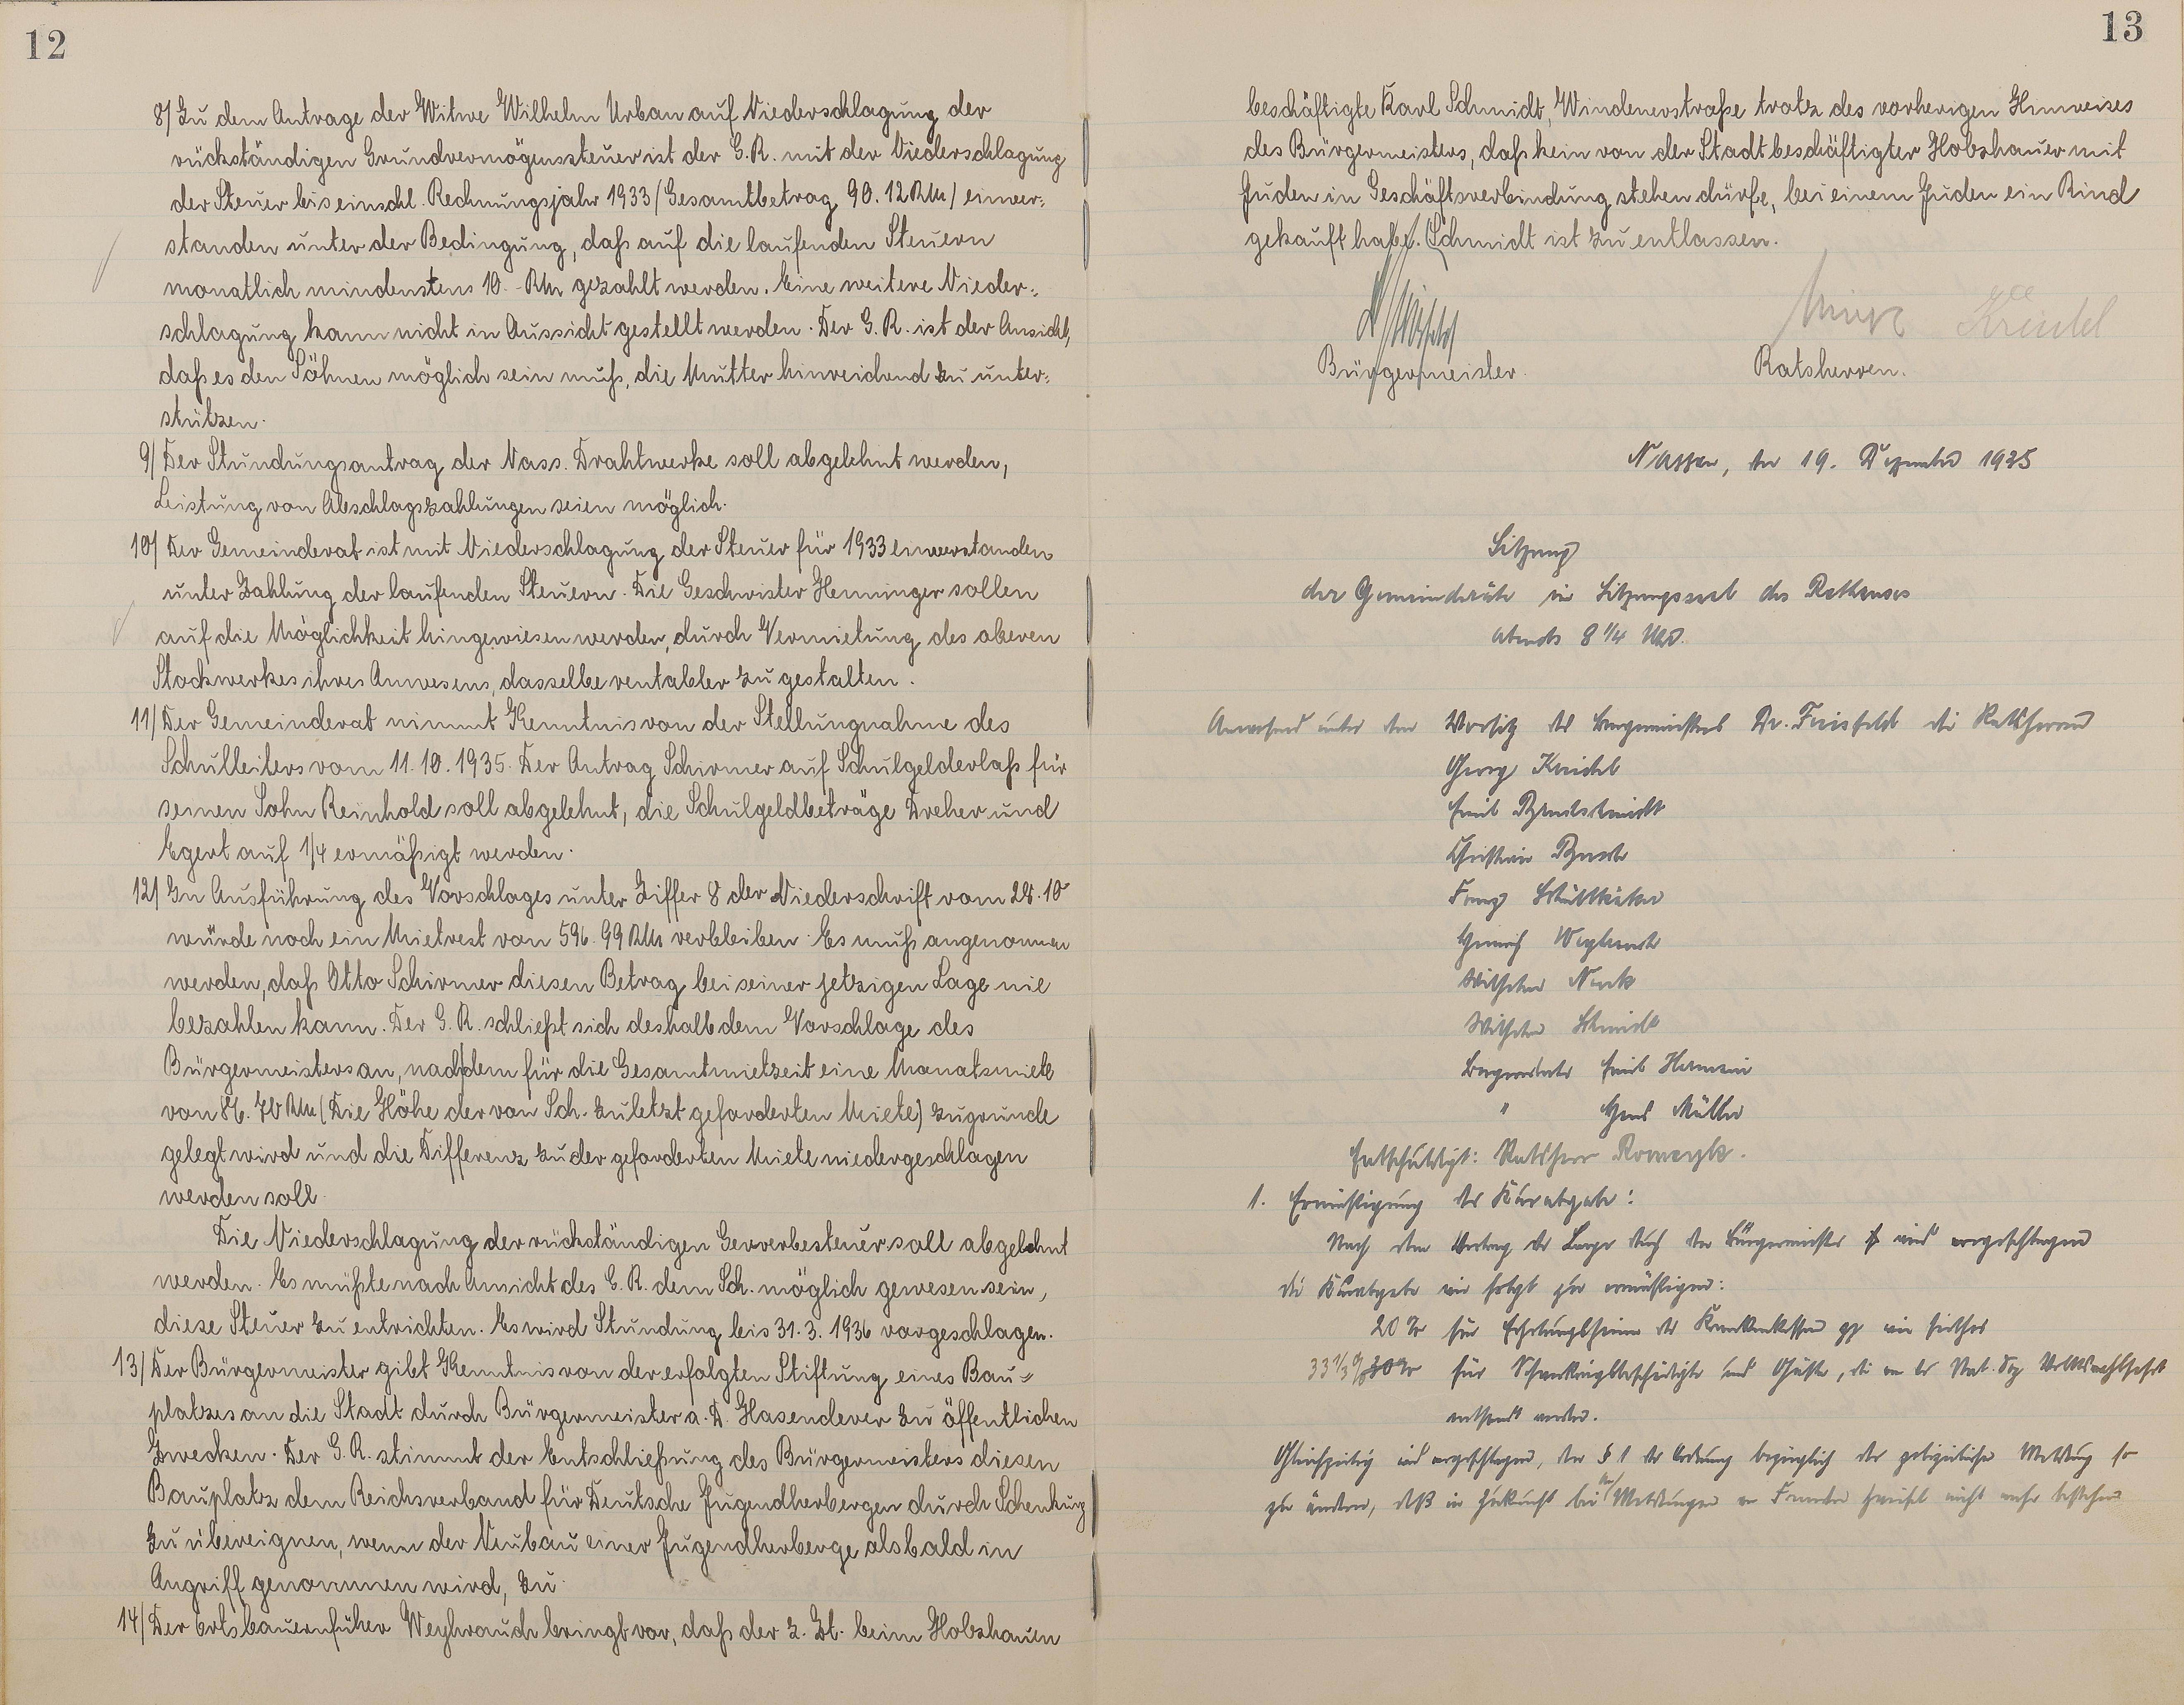 12
8/ Zu dem Antrage der Witwe Wilhelm Urban auf Niederschlagung der
rückständigen Grundvermögenssteuer ist der G.R. mit der Niederschlagung
der Steuer bis einschl. Rechnungsjahr 1933 /Gesamtbetrag 90.12 RM/ einver=
standen unter der Bedingung, daß auf die laufenden Steuern
monatlich mindenstens 10.- RM gezahlt werden. Eine weitere Nieder=
schlagung kann nicht in Aussicht gestellt werden. Der G.R. ist der Ansicht,
daß es den Söhnen möglich sein muß, die Mutter hinreichend zu unter=
stützen.
9/ Der Stundungsantrag der Nass. Drahtwerke soll abgelehnt werden,
Leistung von Abschlagszahlungen seien möglich.
10/ Der Gemeinderat ist mit Niederschlagung der Steuer für 1933 einverstanden
unter Zahlung der laufenden Steuern. Die Geschwister Henninger sollen
auf die Möglichkeit hingewiesen werden, durch Vermietung des oberen
Stockwerkes ihres Anwesens, dasselbe rentabler zu gestalten.
11/ Der Gemeinderat nimmt Kenntnis von der Stellungnahme des
Schulleiters vom 11.10.1935. Der Antrag Schirmer auf Schulgelderlaß für
seinen Sohn Reinhold soll abgelehnt, die Schulgeldbeträge Dreher und
Egert auf 1/4 ermäßigt werden.
12/ In Ausführung des Vorschlages unter Ziffer 8 der Niederschrift vom 28.10
würde noch ein Mietrest von 596.99 RM verbleiben. Es muß angenommen
werden, daß Otto Schirmer diesen Betrag bei seiner jetzigen Lage nie
bezahlen kann. Der G.R. schließt sich deshalb dem Vorschlage des
Bürgermeisters an, nach dem für die Gesamtmietzeit eine Monatsmiete
von 86.70 RM (Die Höhe der von Sch. zuletzt geforderten Miete) zugrunde
gelegt wird und die Differenz zu der geforderten Miete niedergeschlagen
werden soll.
Die Niederschlagung der rückständigen Gewerbesteuer soll abgelehnt
werden. Es müßte nach Ansicht des G.R. dem Sch. möglich gewesen sein,
diese Steuer zu entrichten. Es wird Stundung bis 31.3.1936 vorgeschlagen.
13/ Der Bürgermeister gibt Kenntnis von der erfolgten Stiftung eines Bau=
platzes an die Stadt durch Bürgermeister a.D. Hasenclever zu öffentlichen
Zwecken. Der G.R. stimmt der Entschließung des Bürgermeisters diesen
Bauplatz dem Reichsverband für Deutsche Jugendherbergen durch Schenkung
zu übereignen, wenn der Neubau einer Jugendherberge alsbald in
Angriff genommen wird, zu.
14/ Der Ortsbauernführer Weyhrauch bringt vor, daß der z. Zt. beim Holzhauen
13
beschäftigte Karl Schmidt, Windenerstraße trotz des vorherigen Hinweises
des Bürgermeisters, daß kein von der Stadt beschäftigter Holzhauer mit
Juden in Geschäftsverbindung stehen dürfe, bei einem Juden ein Rind
gekauft habe. Schmidt ist zu entlassen.
Kreidel
Bürgermeister. Ratsherren.
Nassau, den 19. Dezember 1935
Sitzung
der Gemeinderäte im Sitzungssaal des Rathauses
abends 8 1/4 Uhr.
Anwesend unter dem Vorsitz des Bürgermeisters Dr. die Ratsherren
Georg Kreidel
Emil
Christian
Franz
Heinrich Weyhrauch
Wilhelm
Wilhelm Schmidt
Beigeordnete Emil Hermani
" Müller
Entschuldigt: Ratsherr
1. Ermäßigung der Kurabgabe:
Nach dem Vortrag der Lage durch den Bürgermeister wird vorgeschlagen
die Kurabgabe wie folgt zu ermäßigen:
20% für Erholungsheime der Krankenkassen wie bisher
33 1/3 % für Schwerkriegsbeschädigte und Gäste, die von der Nat. Soz. Volkswohlfahrt
betreut werden.
Gleichzeitig wird vorgeschlagen, den § 1 der Ordnung bezüglich der polizeilichen Meldung so
zu ändern, daß in Zukunft bei den Meldungen von Fremden Zweifel nicht mehr bestehen